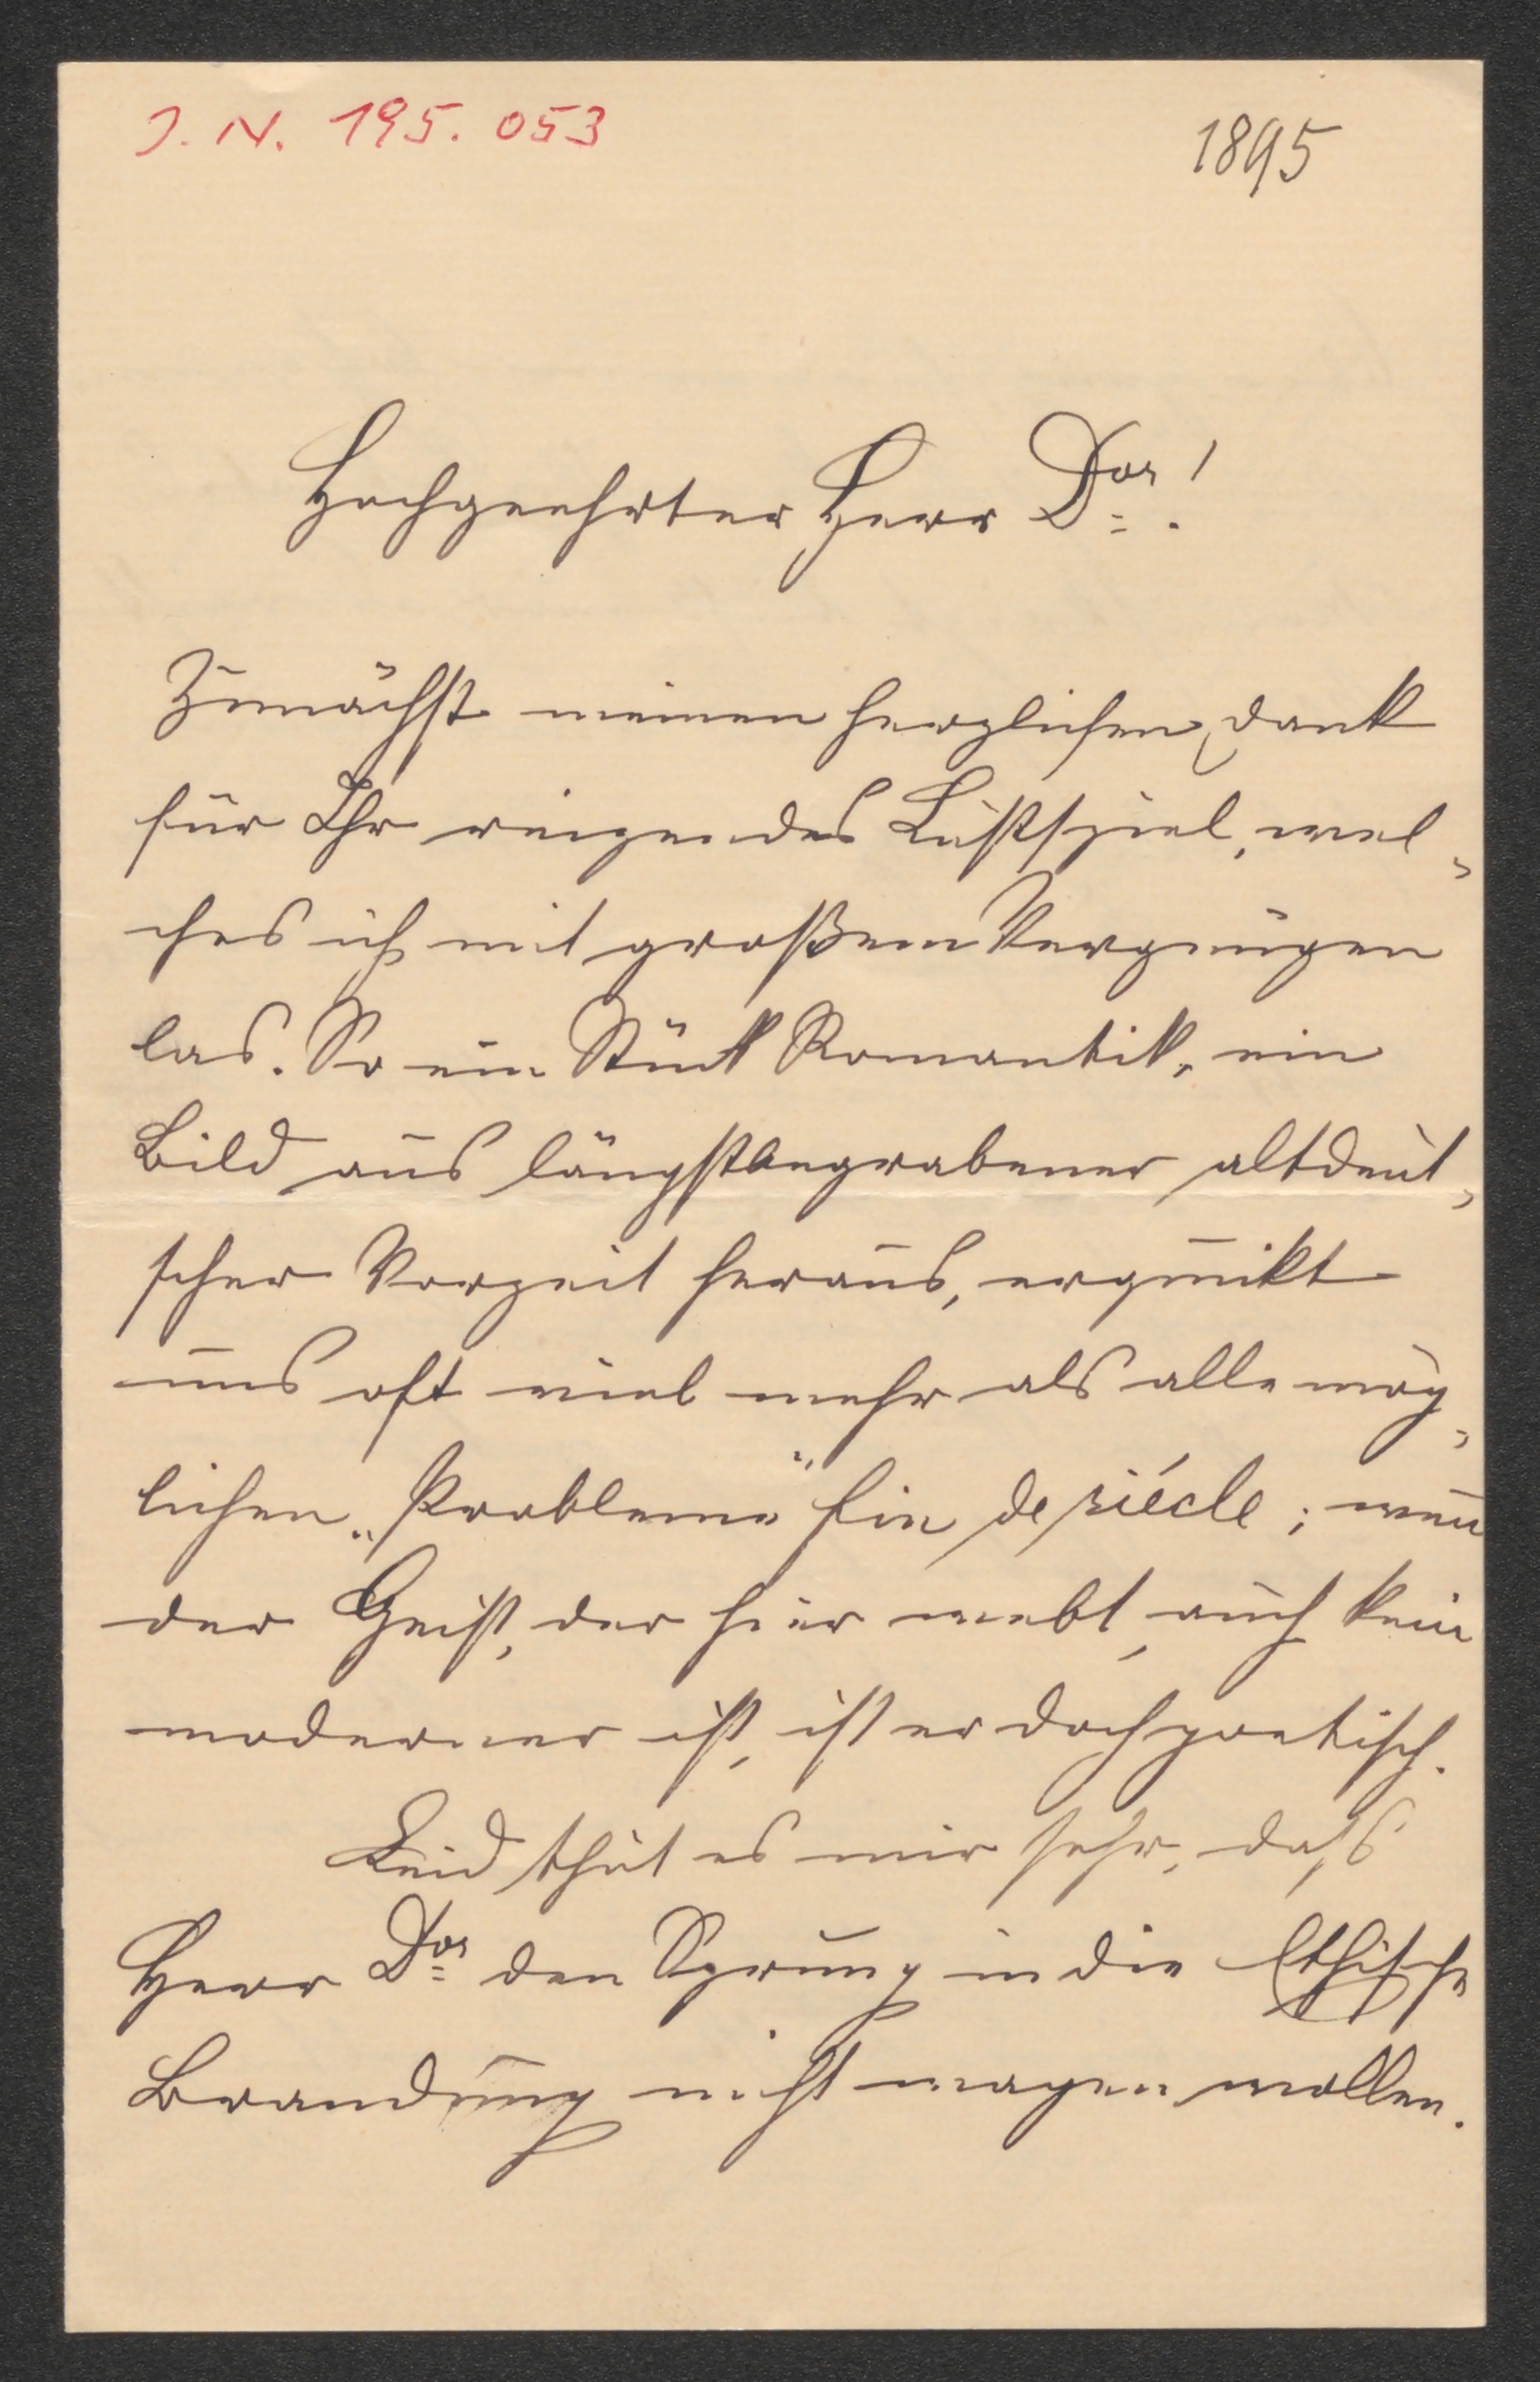 J. N. 195.053
1895
Hochgeehrter Herr Dor!
Zunächst meinen herzlichen Dank
für Ihr reizendes Lustspiel, wel-
ches ich mit großem Vergnügen
las. So ein Stück Romantik, ein
Bild aus längstbegrabener altdeut-
scher Vorzeit heraus, erquikt
uns oft viel mehr als alle mög-
lichen „Probleme“ fin de siécle; wenn
der Geist, der hier webt, auch kein
moderner ist, ist er doch poetisch.
Leid thut es mir sehr, daß
Herr Dor den Sprung in die Ethische
Brandung nicht wagen wollen.